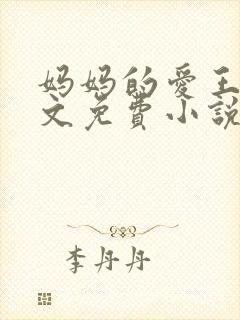 妈妈的爱王
文免費小說
李丹丹